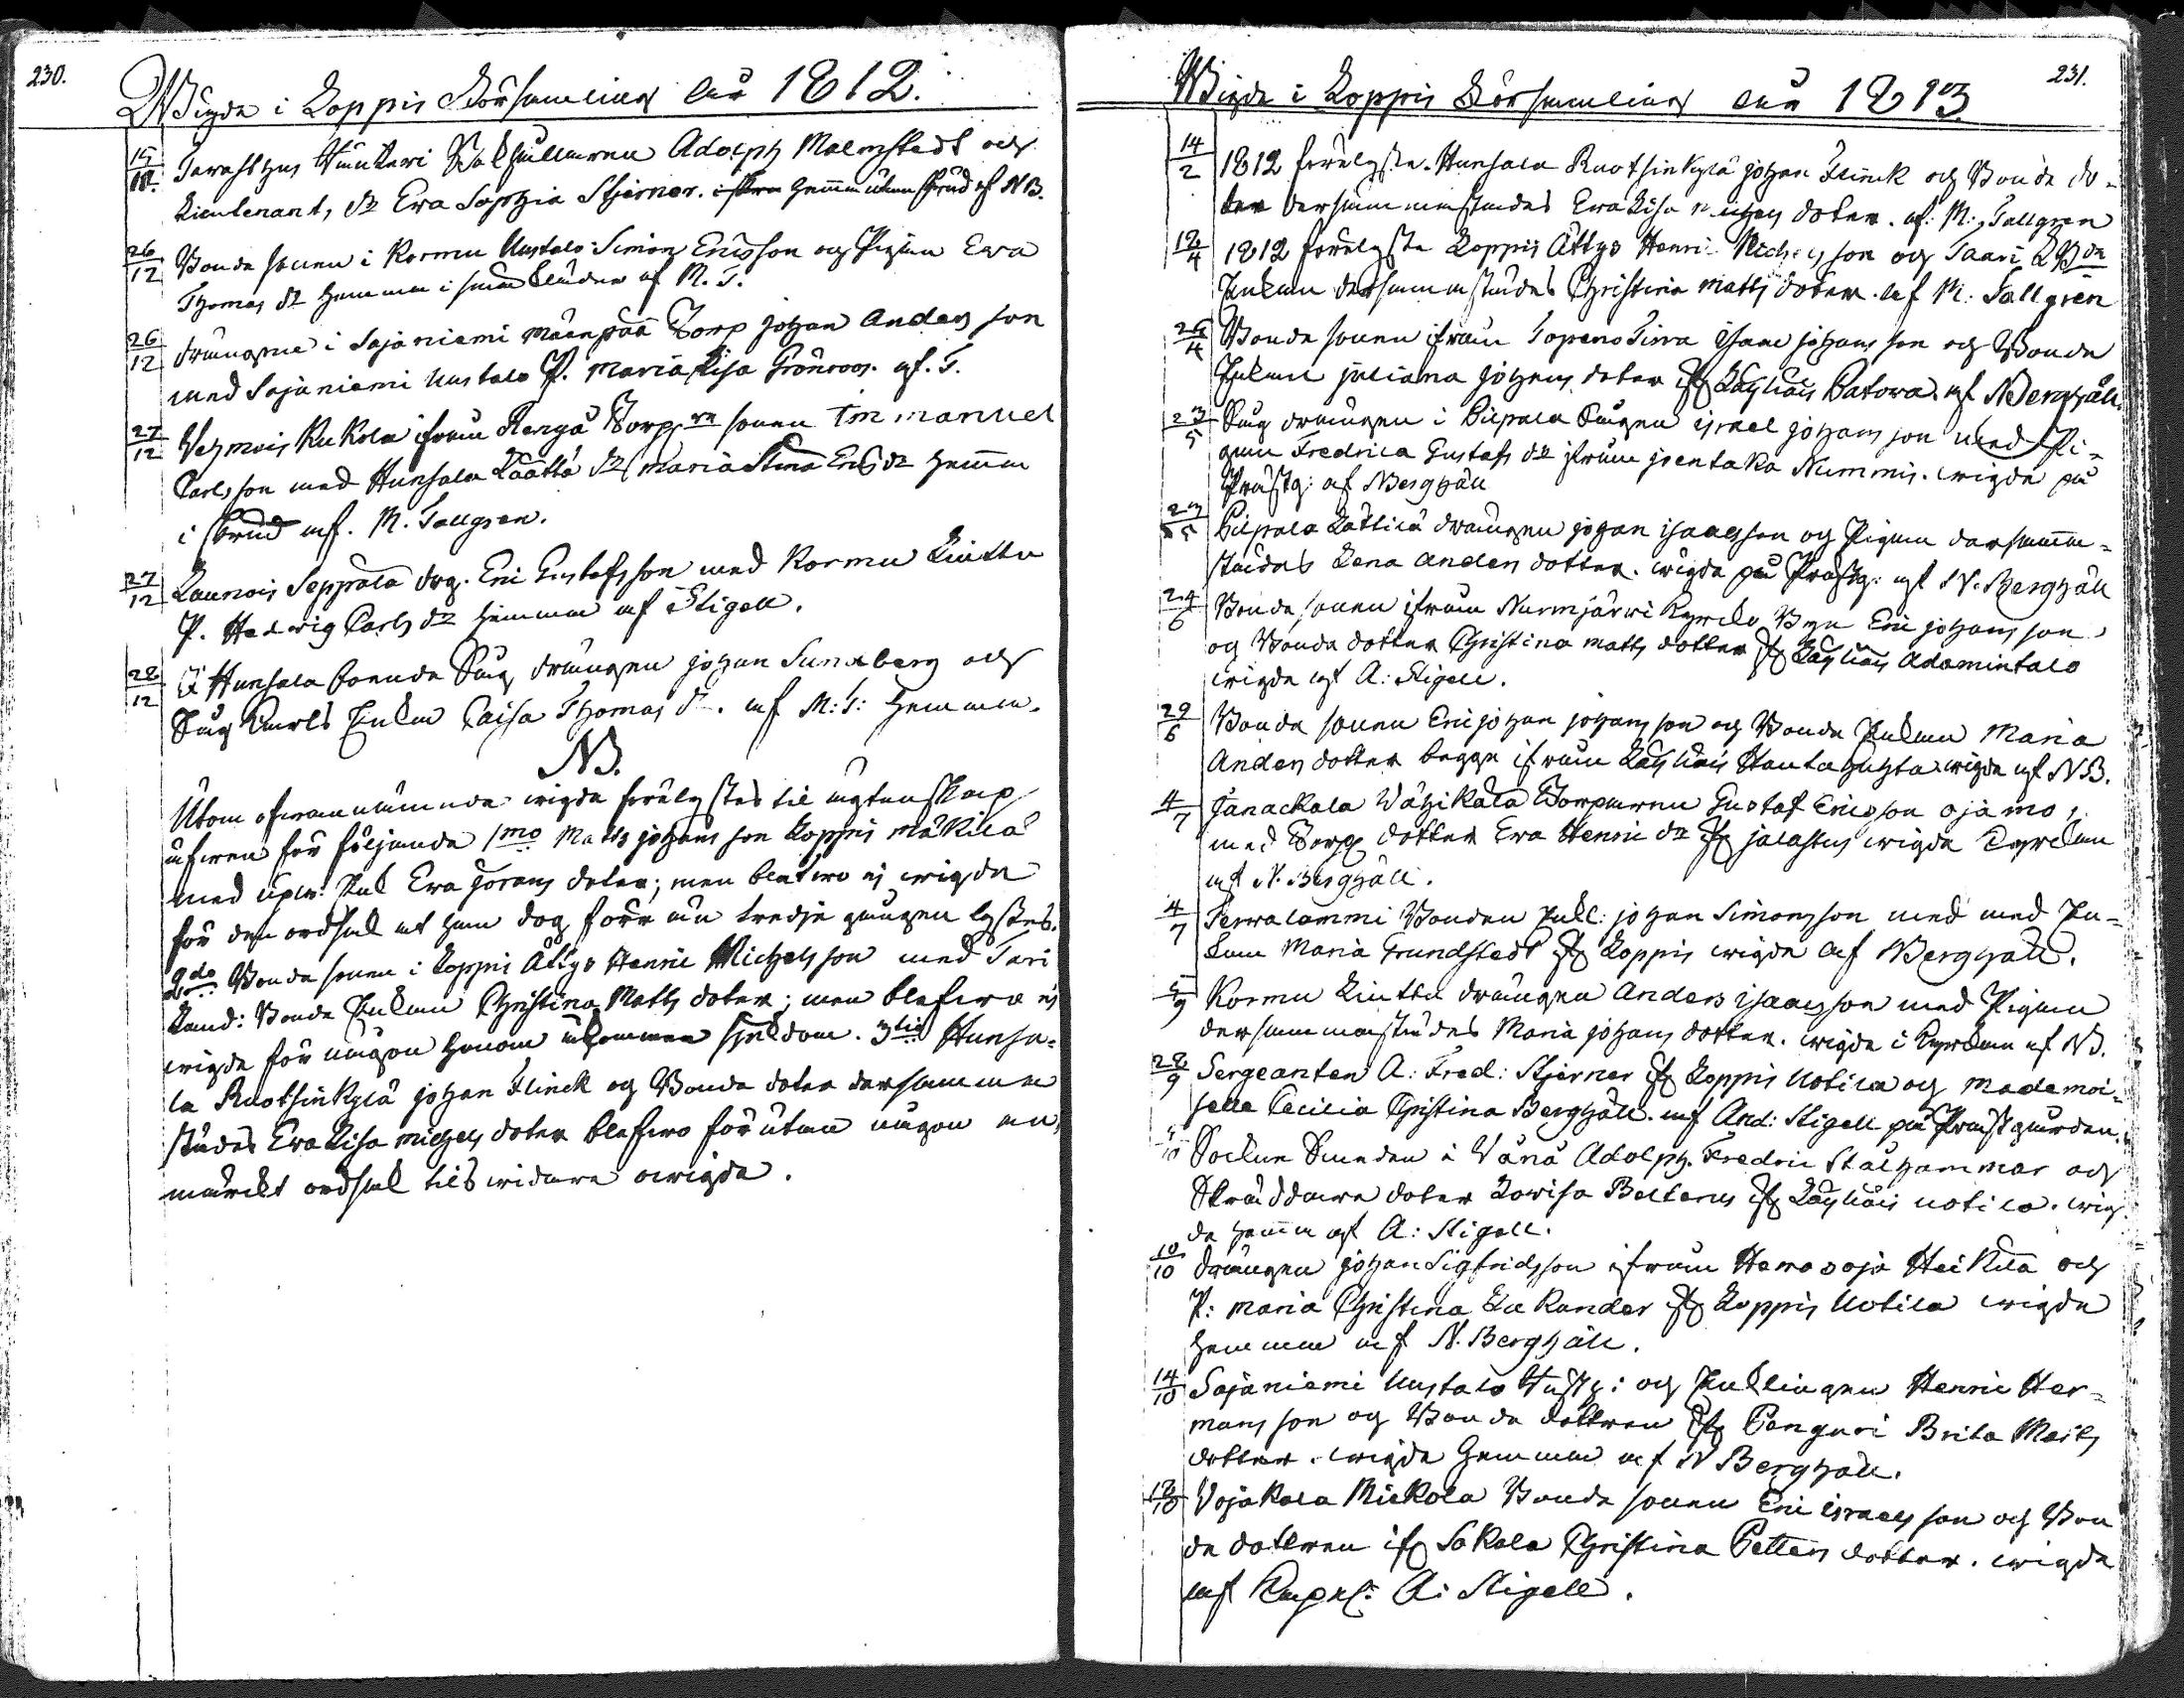 230.
Wigde i Loppis Församling år 1812.
15/12 Tavasthus Hünkeri Befallnman Adolph Malmstedt och
Lieutenant, dr Ewa Sophia Stjerner. hemma utan skrud af NB.
26/12 Bonde sonen i Kormu Uustalo Simon Ericsson og Pigan Ewa
Thomas dr hemma i sina kläder af M. T.
26/12 drängne i Sajaniemi mäenpää Torp johan Anders son
med Sajaniemi Uustalo P. maria Lisa Grönroos. af. T.
27/12 Vojmois Kukola ifrån Rengå Torp.rn sonen Immanuel
Carls son med Hunsala Läättä dr maria Stina Erics dr hemma
i skrud af. M. Tallgren.
27/12 Launois Seppälä drg. Eric Gustafs son med Kormu Liuttu
P. Hedwig Carls dr hemma af Stigell.
28/12 Å Hunsala boende Sug drängen johan Sundberg och
Sug Carls Enkan Caisa Thomas dr. af M: T: hemma.
NB.
Utom ofwannämnde wigde förelystes til ägtenskap
äfwen för följande 1mo Matts johans son Loppis mäkilä
med Enkl Ewa jörans doter; men blefwo ej wigde
för den ordsak at han dog förr än tredje gången lystes.
2do Bonde sonen i Loppis Ättyo Henric Michels son med Tari
Land: Bonde Enkan Christina Matts doter; men blefwo ej
wigde för någon honom åkommen sjukdom. 3tio Hunsa-
la Ruotsinkylä johan Flinck og Bonde doter dersamma
städes Ewa Lisa michels doter blefwo förutan någon an-
märckt ordsak tils widare owigde.
231.
Wigde i Loppis Församling år 1813
14/2 1812 förelyste. Hunsala Ruotsinkylä johan Flinck og Bonde do-
ter dersammastädes Ewa Lisa michels doter. af: M: Tallgren
18/4 1812 förelyste Loppis Ättyo Henric Michels son og Saari LBde
Enkan dersammastädes Christina matts doter. af M: Tallgren
25/4 Bonde sonen ifrån Topeno Tirra isaac johans son og Bonde
Enkan juliana johans doter ifr Läyliäis Ratova af N Berghäll.
23/5 Sug drängen i Pilpala Sugen israel johans son med Pi-
gan Fredrica Gustafs dr ifrån jsentaka Nummis. wigde på
Prästg: af N Berghäll
23/5 Pilpala Lättilä drängen johan isaacsson og Pigan dersamma-
städes Lena Anders dotter. wigde på Prästg: af N. Berghäll
24/6 Bonde sonen ifrån Nurmijärwi Kyrcko Byn Eric johans son
og Bonde dotter Christina matts dotter ifr Läyliäis Adamintalo
wigde af A: Stigell.
29/6 Bonde sonen Eric johan johans son og Bonde Enkan Maria
Anders dotter begge ifrån Läyliäis Hautahuhta wigde af NB.
4/7 janackala Vähikälä Torparen Gustaf Ericsson ojamo,
med Torp dotter Ewa Henric dr ifr jalastus wigde Kyrckan
af N. Berghäll.
4/7 Terwalammi Bonden Enkl: johan Simonsson med med En-
kan Maria Grundstedt ifr Loppis wigde af N Berghäll.
5/9 Kormu Liuttu drängen Anders isaacsson med Pigan
dersammastädes Maria johans dotter. wigde i Kyrckan af NB.
28/9 Sergeanten A: Fred: Stjerner ifr Loppis Uotila og mademoi-
selle Cecilia Christina Berghäll. af And: Stigell på Prästgården.
10 Socken Smeden i Vånå Adolph. Fredric Stålhammar och
Skräddare doter Lowisa Bellerus ifr Läyliäis uotila. wig-
de hemma af A: Stigell.
10/10 drängen johan Sigfridsson ifrån Hawosoja Heikilä och
P: maria Christina Lukander ifr Loppis Uotila wigde
hemma af N. Berghäll.
14/10 Sajaniemi Uustalo Tufty: og Enklingen Henric Her-
mans son og Bonde dottren ifr Pengari Brita Matts
dotter. wigde hemma af N Berghäll.
18/10 Vojakala Mickola Bonde sonen Eric israels son och Bon
de dottren ifr Sakala Christina Petters dotter. wigde
af Caplan: A: Stigell.